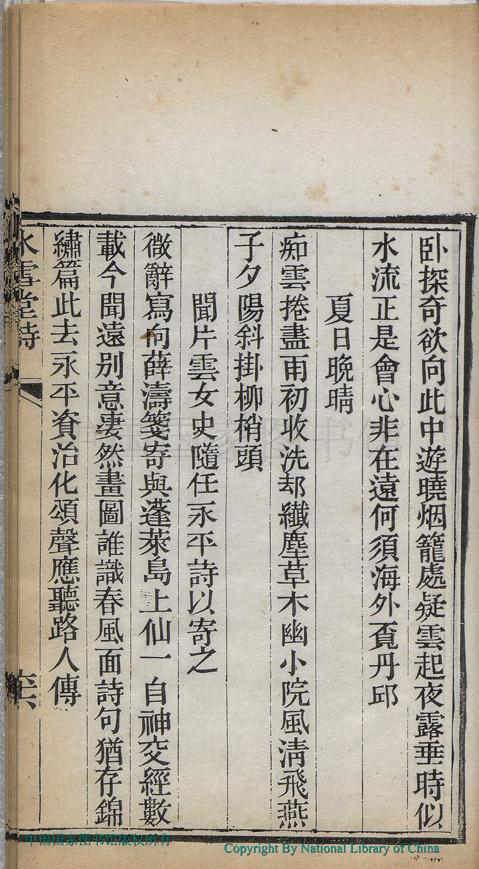 卧探奇欲向此中遊曉烟籠處疑雲起夜露垂時似
水流正是會心非在遠何須海外覔丹邱
夏日晚晴
痴雲捲盡雨初收洗却纖塵草木幽小院風清飛燕
子夕陽斜掛柳梢頭
聞片雲女史隨任永平詩以寄之
微辭寫向薛濤箋寄與蓬萊島上仙一自神交經數
載今聞遠別意凄然畫圖誰識春風面詩句猶存錦
繡篇此去永平資治化頌聲應聽路人傳
冰雪堂詩
六
中国国家图书馆版权所有
Copyright By National Library of China